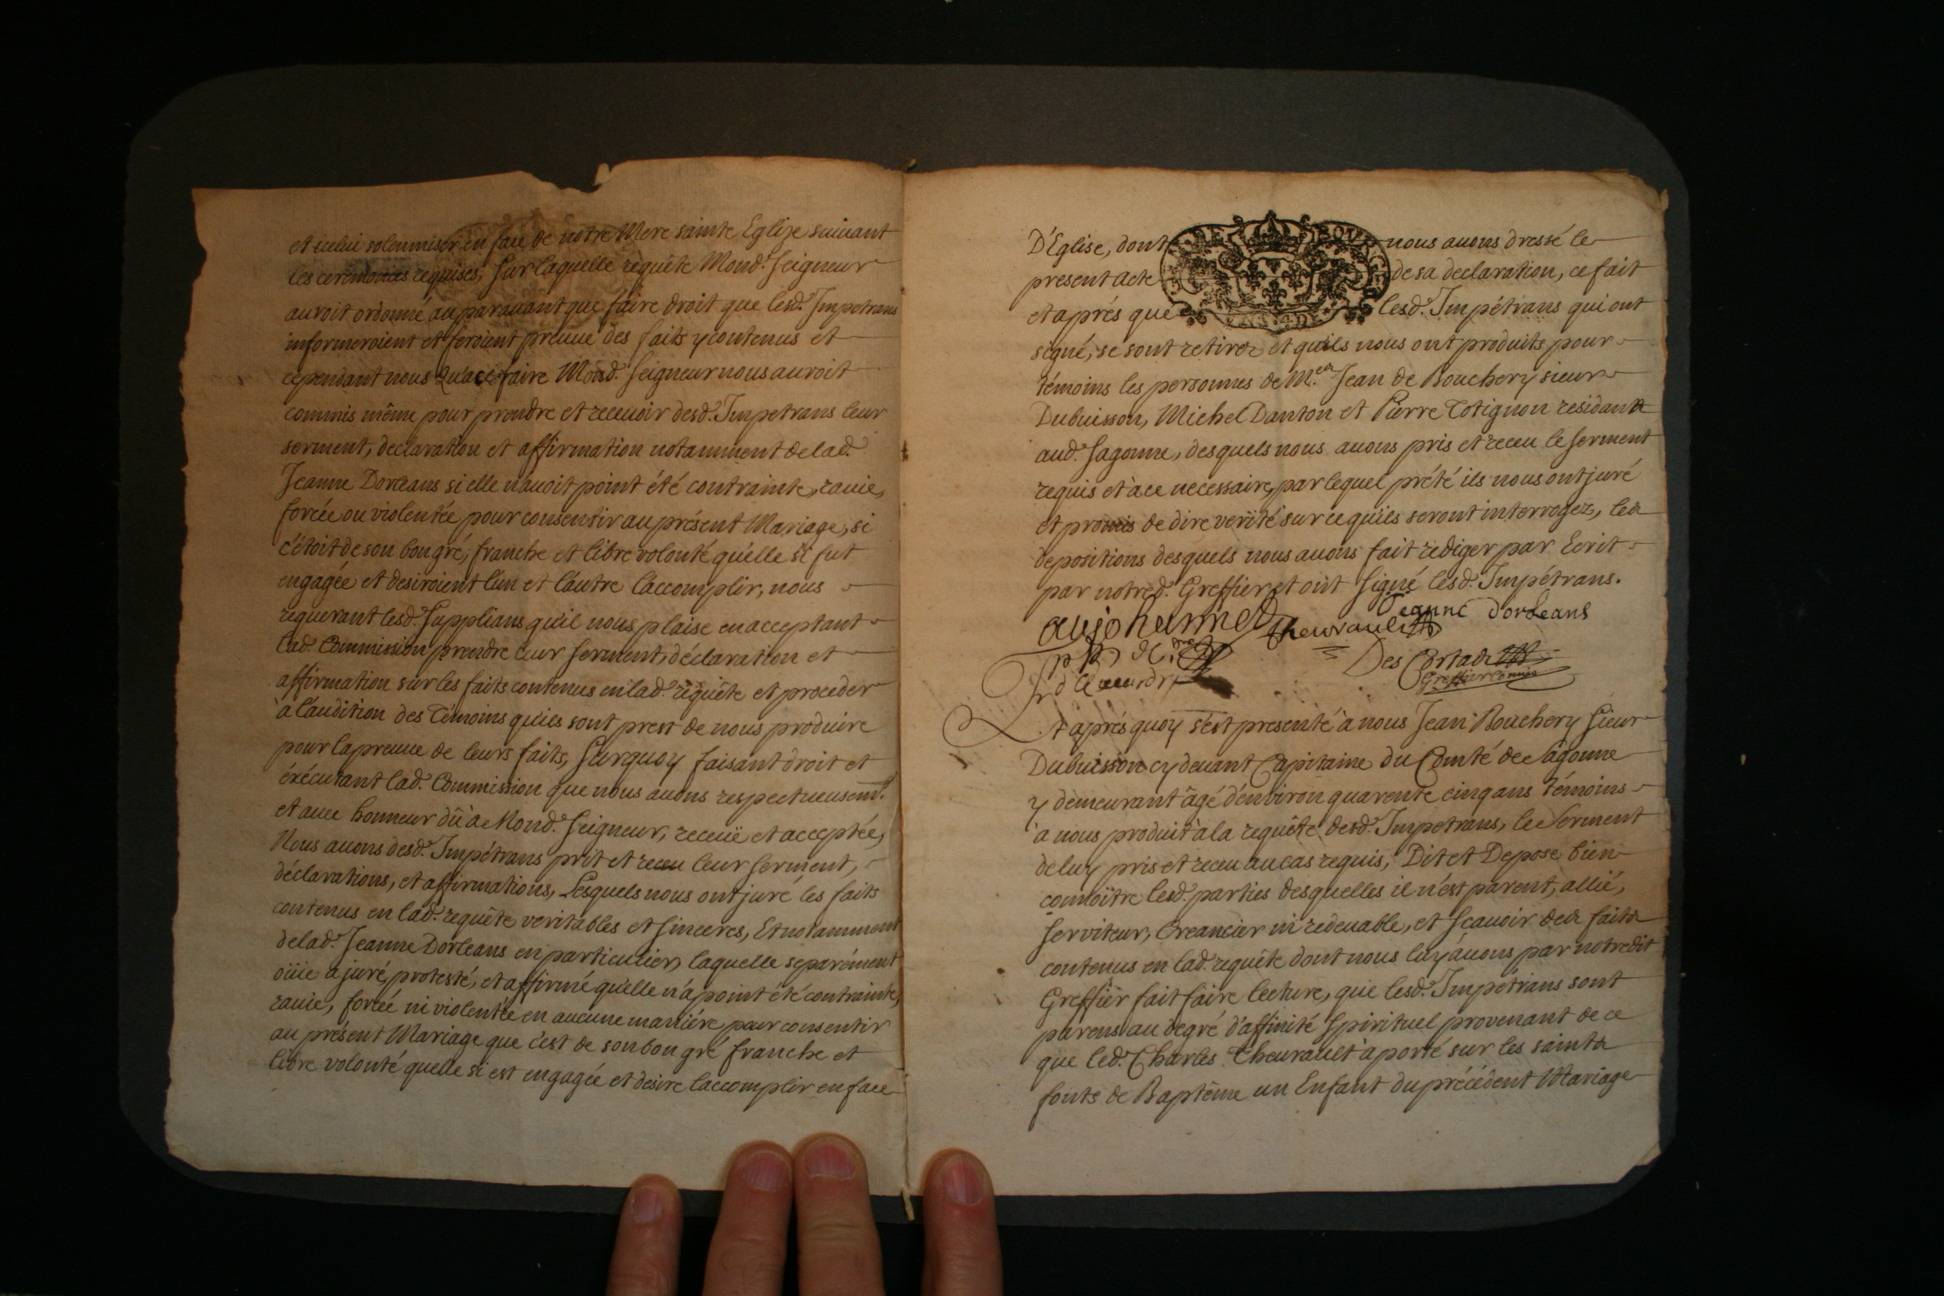 et icelui solemniser en face de nôtre Mere sainte Eglise suivant
les ceremonies requises, sur laquelle requête Mond. Seigneur
auroit ordonné auparauant que faire droit que lesd. Impetrans
informeroient et feroient preuue des faits y contenus et
cependant nous Mond. Seigneur nous auroit
commis même pour prendre et receuoir desd. Impetrans leur
serment, declaration et affirmation notamment de lad.
Jeanne Dorleans si elle n'auoit point été contrainte, rauie,
forcée ou violentée pour consentir au présent Mariage, si
c'étoit de son bon gré, franche et libre volonté qu'elle si fut
engagée et desiroient l'un et l'autre l'accomplir, nous
requerant lesd. Supplians qu'il nous plaise en acceptant
lad. Commission prendre leur serment, déclaration et
affirmation sur les faits contenus en lad. requête et proceder
a l'audition des Témoins qu'ils sont prest de nous produire
pour la preuue de leurs faits, Surquoy faisant droit et
éxécutant lad. Commission que nous auons respectueusemt.
et auec honneur dû à Mond. Seigneur, receüe et acceptée,
Nous auons desd. Impétrans prit et receu leur serment,
déclarations, et affirmations, Lesquels nous ont juré les faits
contenus en lad. requête veritables et sinceres, Et notamment
de lad. Jeanne Dorleans en particulier, laquelle separément
oüie a juré, protesté, et affirmé qu'elle n'a point été contrainte,
rauie, forcée ni violentée en aucune maniére pour consentir
au présent Mariage que c'est de son bon gré franche et
libre volonté quelle si est engagée et desire l'accomplir en face
D'Eglise, dont nous auons dressé le
present acte de sa declaration, ce fait
et aprés que lesd. Impétrans qui ont
signé, se sont retirez et qu'ils nous ont produits pour
témoins les personnes de Me. Jean de Bouchery sieur
Dubuisson, Michel Danton et Pierre Totignon residans
aud. Sagonne, desquels nous auons pris et receu le serment
requis et à ce necessaire, par lequel prété ils nous ont juré
et promis de dire verité sur ce qu'ils seront interrogez, les
depositions desquels nous auons fait rediger par Ecrit
par notred. Greffier et ont signé lesd. Impétrans.
Jeanne dorleans
aujohannet Theurault
Des
Greffier commis
Et aprés quoy s'est presenté à nous Jean Bouchery sieur
Dubuisson cy deuant Capitaine du Comté de Sagonne
y demeurant âgé d'enuiron quarente cinq ans témoins
à nous produit à la requête desd. Impetrans, le Serment
de luy pris et receu au cas requis, Dit et Depose bien
connoître lesd. parties desquelles il n'est parent, allié,
serviteur, Creancier ni redeuable, et sçauoir des faits
contenus en lad. requête dont nous luy auons par notredit
Greffier fait faire lecture, que lesd. Impétrans sont
parens au degré d'affinité spirituel provenant de ce
que led. Charles Theurault a porté sur les saints
fonts de Baptême un Enfant du précédent Mariage